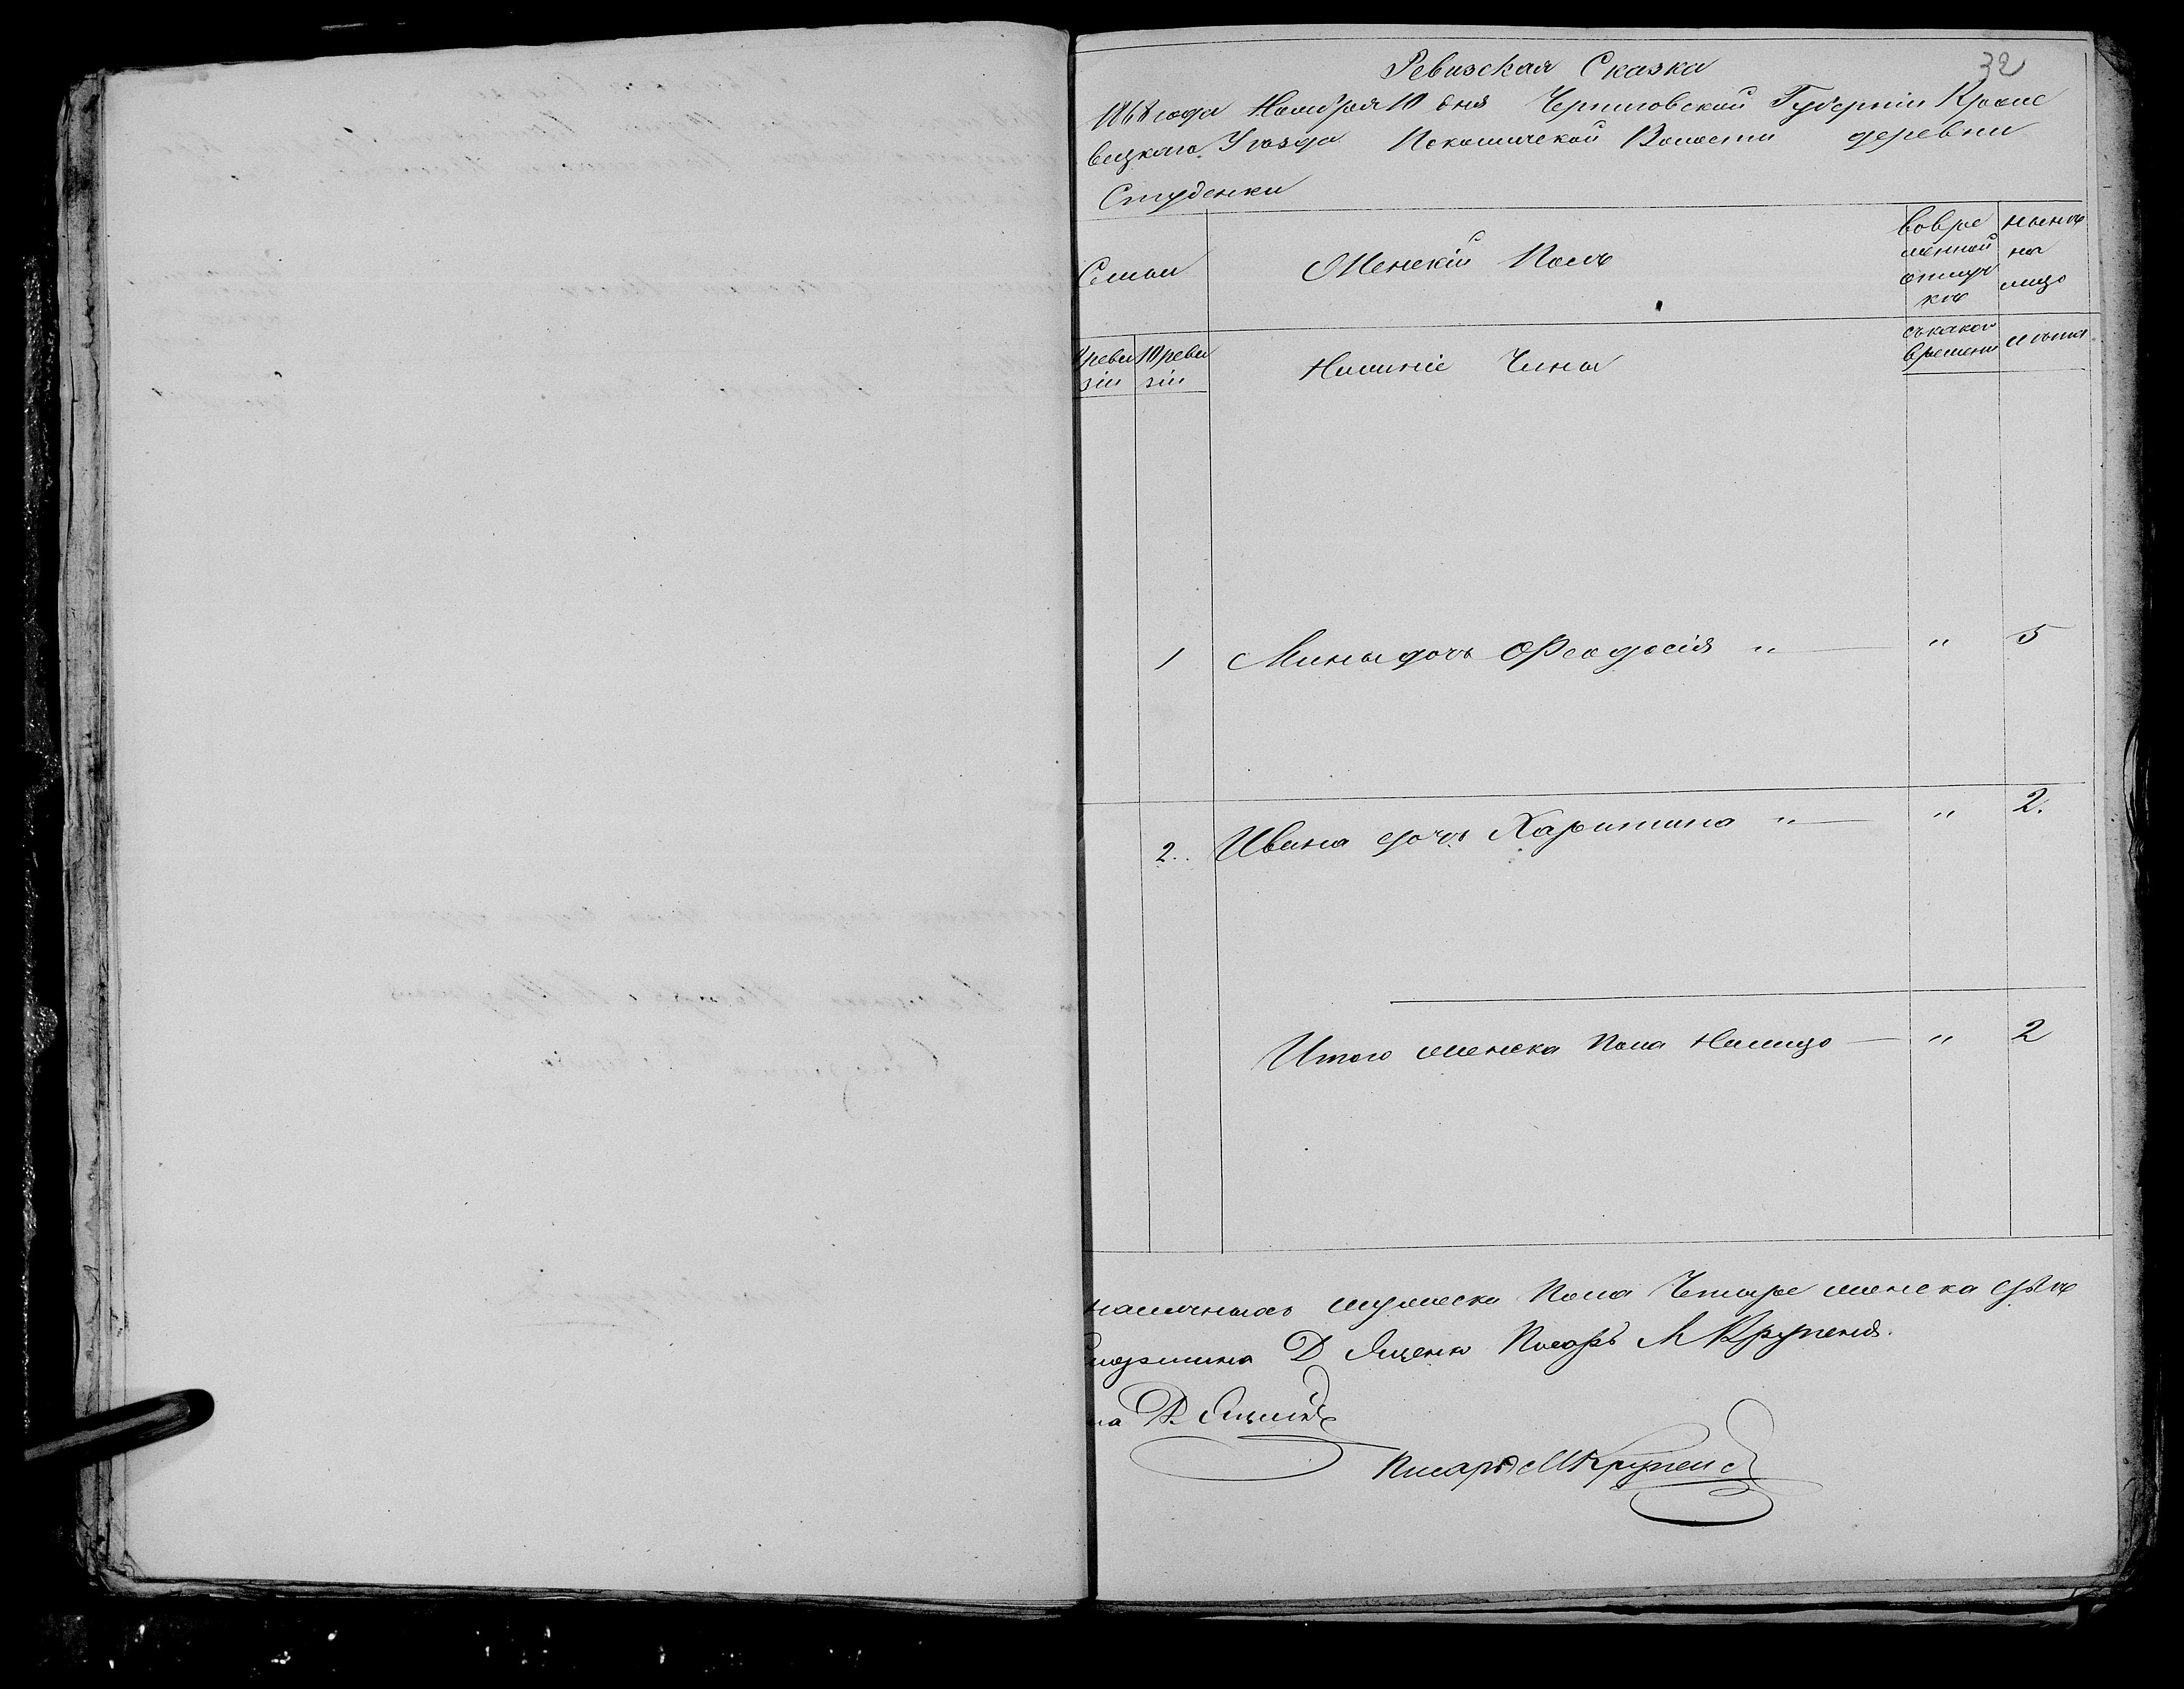 32
Ревизская Сказка
1868 года Ноября 10 дня Черниговской Губернiи Кроле
вецкаго Уѣзда Покошичской Волости деревни
Студенки
Семьи
Женскiй Полъ
вовре
менной
отлуч
кѣ
нынѣ
на
лицо
ревизiи
10 ревизiи
Нижнiе Чины
съ какого
времени
лѣта
1 Мины дочь Феодосiя " " 5
2. Ивана дочь Харитина " " 2.
Итого женска пола Налицо " 2
наличныхъ мужеска Пола Четыре женска двѣ
Д Яценко Писарь М Крупеня.
на Д. Яценко
Писарь М Крупеня